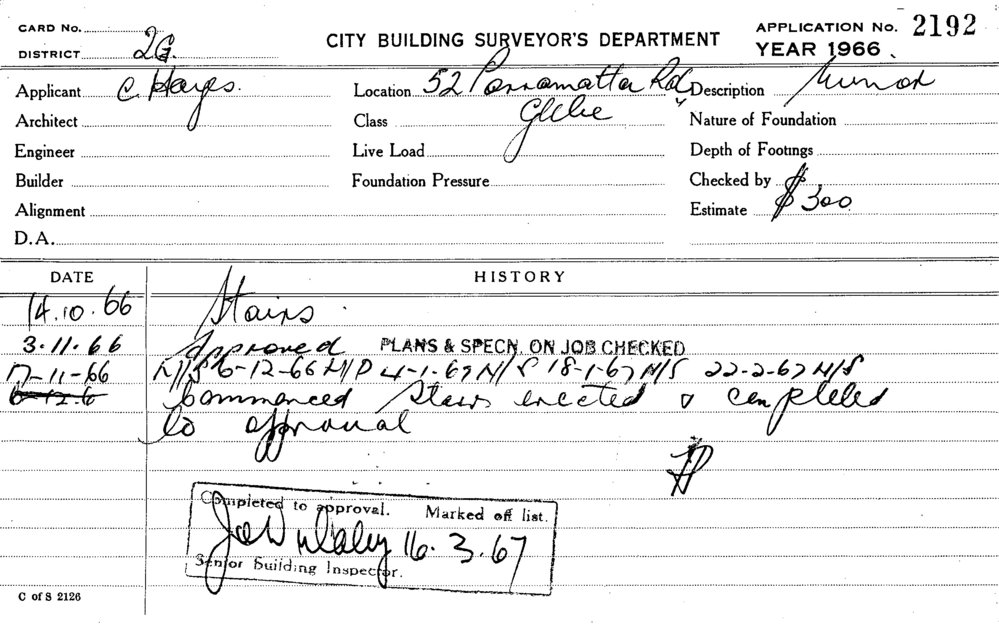 CARD No. CITY BUILDING SURVEYOR'S DEPARTMENT APPLICATION No. 2192
DISTRICT 2G. YEAR 1966
Applicant C. Hayes. Location 52 Parramatta Rd Description Minor
Architect Class Glebe Nature of Foundation
Engineer Live Load Depth of Footings
Builder Foundation Pressure Checked by
Alignment Estimate $300
D.A.
DATE HISTORY
14.10.66 Stairs.
3.11.66 Approved PLANS & SPECN. ON JOB CHECKED
17-11-66 N/S 6-12-66 N/P 4-1-67 N/S 18-1-67 N/S 22-2-67 N/S
6-12-6 Commenced Stairs erected & completed
to approval
Completed to approval. Marked off list.
16.3.67
Senior Building Inspector.
C of S 2126